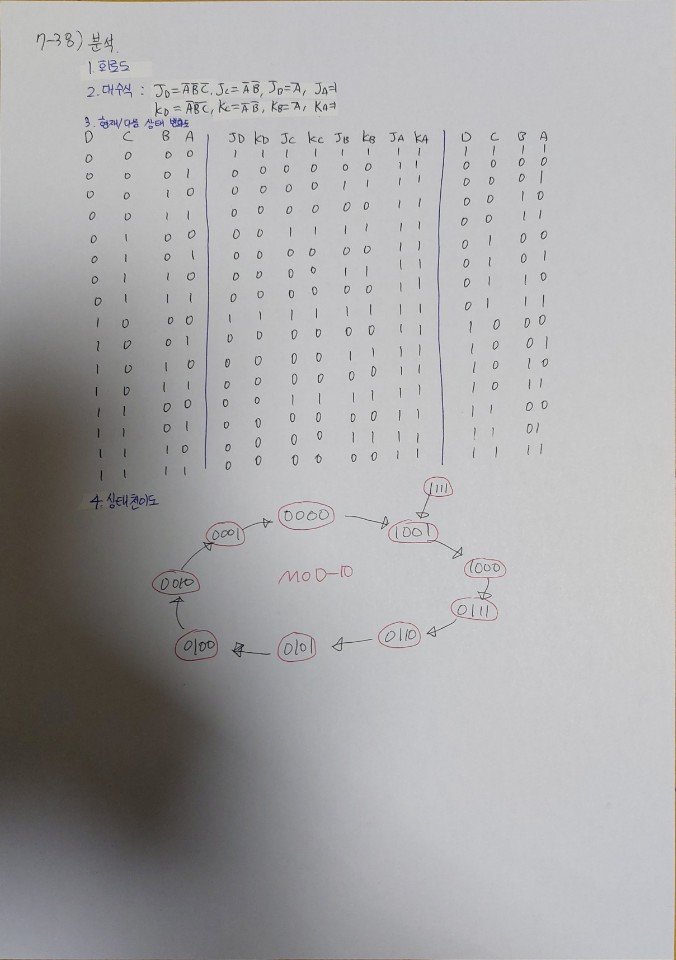 7-38) 분석
1. 회로도
2. 대수식 : J_D = A̅ B̅ C̅, J_C = A̅ B̅, J_D = A̅, J_A=1
K_D = A̅ B̅ C̅, K_C = A̅ B̅, K_B = A̅, K_A=1
3. 현재/다음 상태 변화도
D C B A J_D K_D J_C K_C J_B K_B J_A K_A D C B A
0 0 0 0 1 1 1 1 1 1 1 1 1 1 1 1
0 0 0 1 0 0 0 0 0 0 1 1 0 0 0 0
0 0 1 0 0 0 0 0 1 1 1 1 0 0 0 1
0 0 1 1 0 0 0 0 0 0 1 1 0 0 1 0
0 1 0 0 0 0 1 1 1 1 1 1 0 0 1 1
0 1 0 1 0 0 0 0 0 0 1 1 0 1 0 0
0 1 1 0 0 0 0 0 1 1 1 1 0 1 0 1
0 1 1 1 0 0 0 0 0 0 1 1 0 1 1 0
1 0 0 0 1 1 1 1 1 1 1 1 0 1 1 1
1 0 0 1 0 0 0 0 0 0 1 1 1 0 0 0
1 0 1 0 0 0 0 0 1 1 1 1 1 0 0 1
1 0 1 1 0 0 0 0 0 0 1 1 1 0 1 0
1 1 0 0 0 0 1 1 1 1 1 1 1 0 1 1
1 1 0 1 0 0 0 0 0 0 1 1 1 1 0 0
1 1 1 0 0 0 0 0 1 1 1 1 1 1 0 1
1 1 1 1 0 0 0 0 0 0 1 1 1 1 1 1
4. 상태천이도
1111
0000
0001
1001
MOD-10
1000
0010
0111
0110
0100
0101